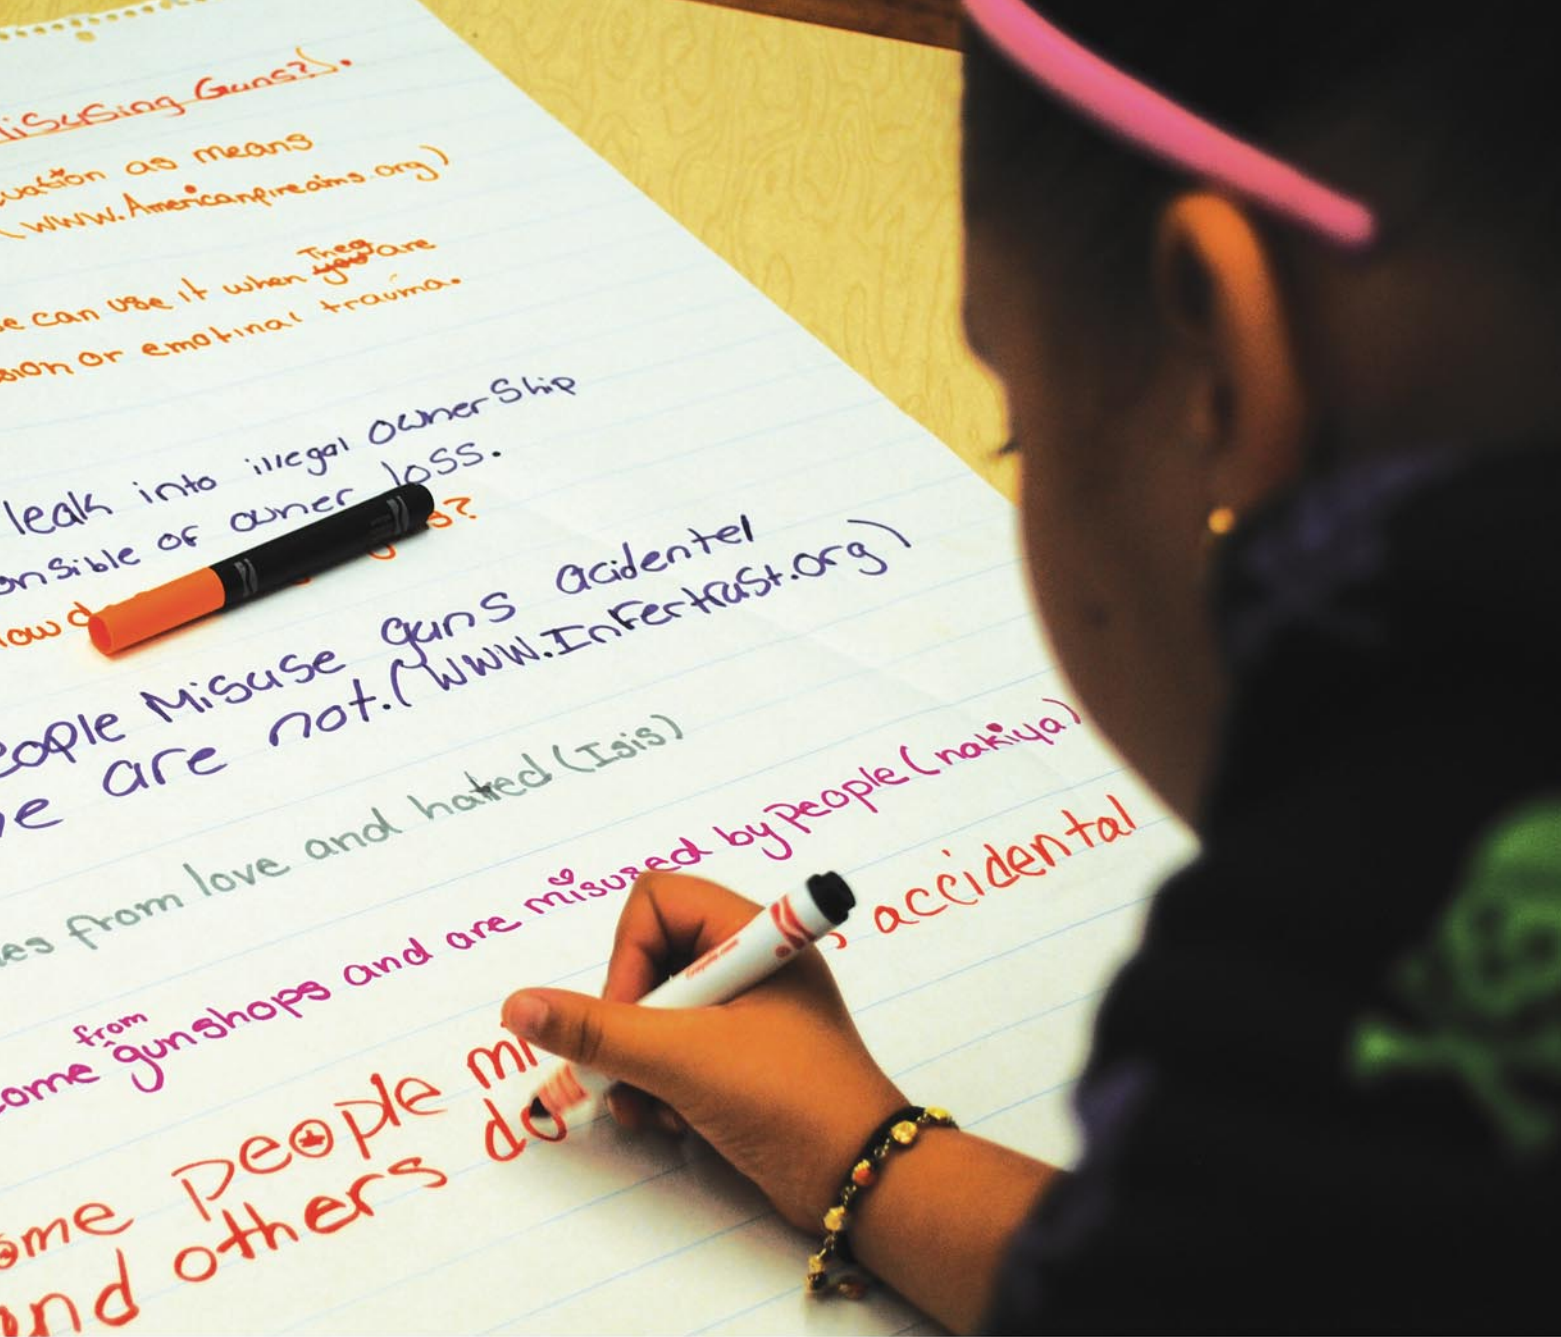 Misusing Guns?).
uation as means
(WWW.Americanfireaims.org)
e can use it when they you are
sion or emotinal trauma.
leak into illegal ownerShip
onsible of owner loss.
low d s?
eople Misuse guns acidentel
e are not. (WWW.InFertrust.org)
es from love and hatred (Isis)
come from gunshops and are misused by people (nakiya)
ome people mi s accidental
and others do